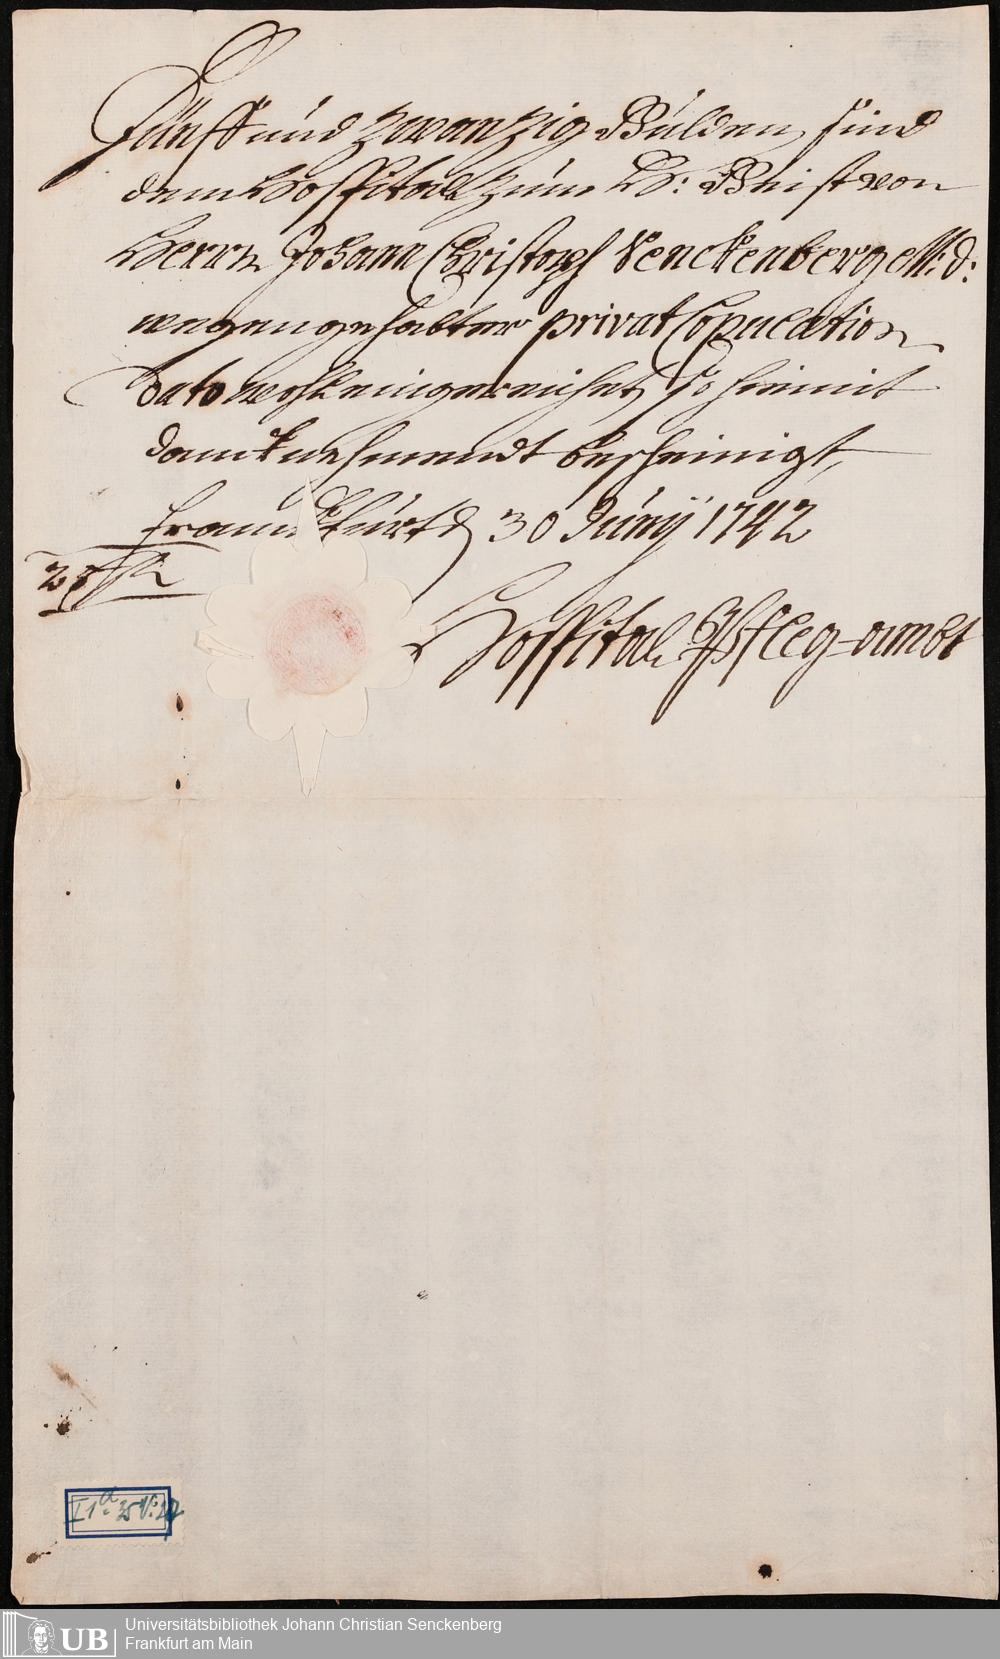 Fünff und zwanzig Gulden, sind
dem Hospital zum H: Geist von
Herrn Johann Christoph Senckenberg M: d:
wegen gehabter privat Copulation
dato eingereichet, so hiemit
dancknehmendt bescheinigt,
Franckfurt d 30 Juny 1742
25 fl
Hospital Pfleg-ambt
I 1a 25 No: 27
UB
Universitätsbibliothek Johann Christian Senckenberg
Frankfurt am Main